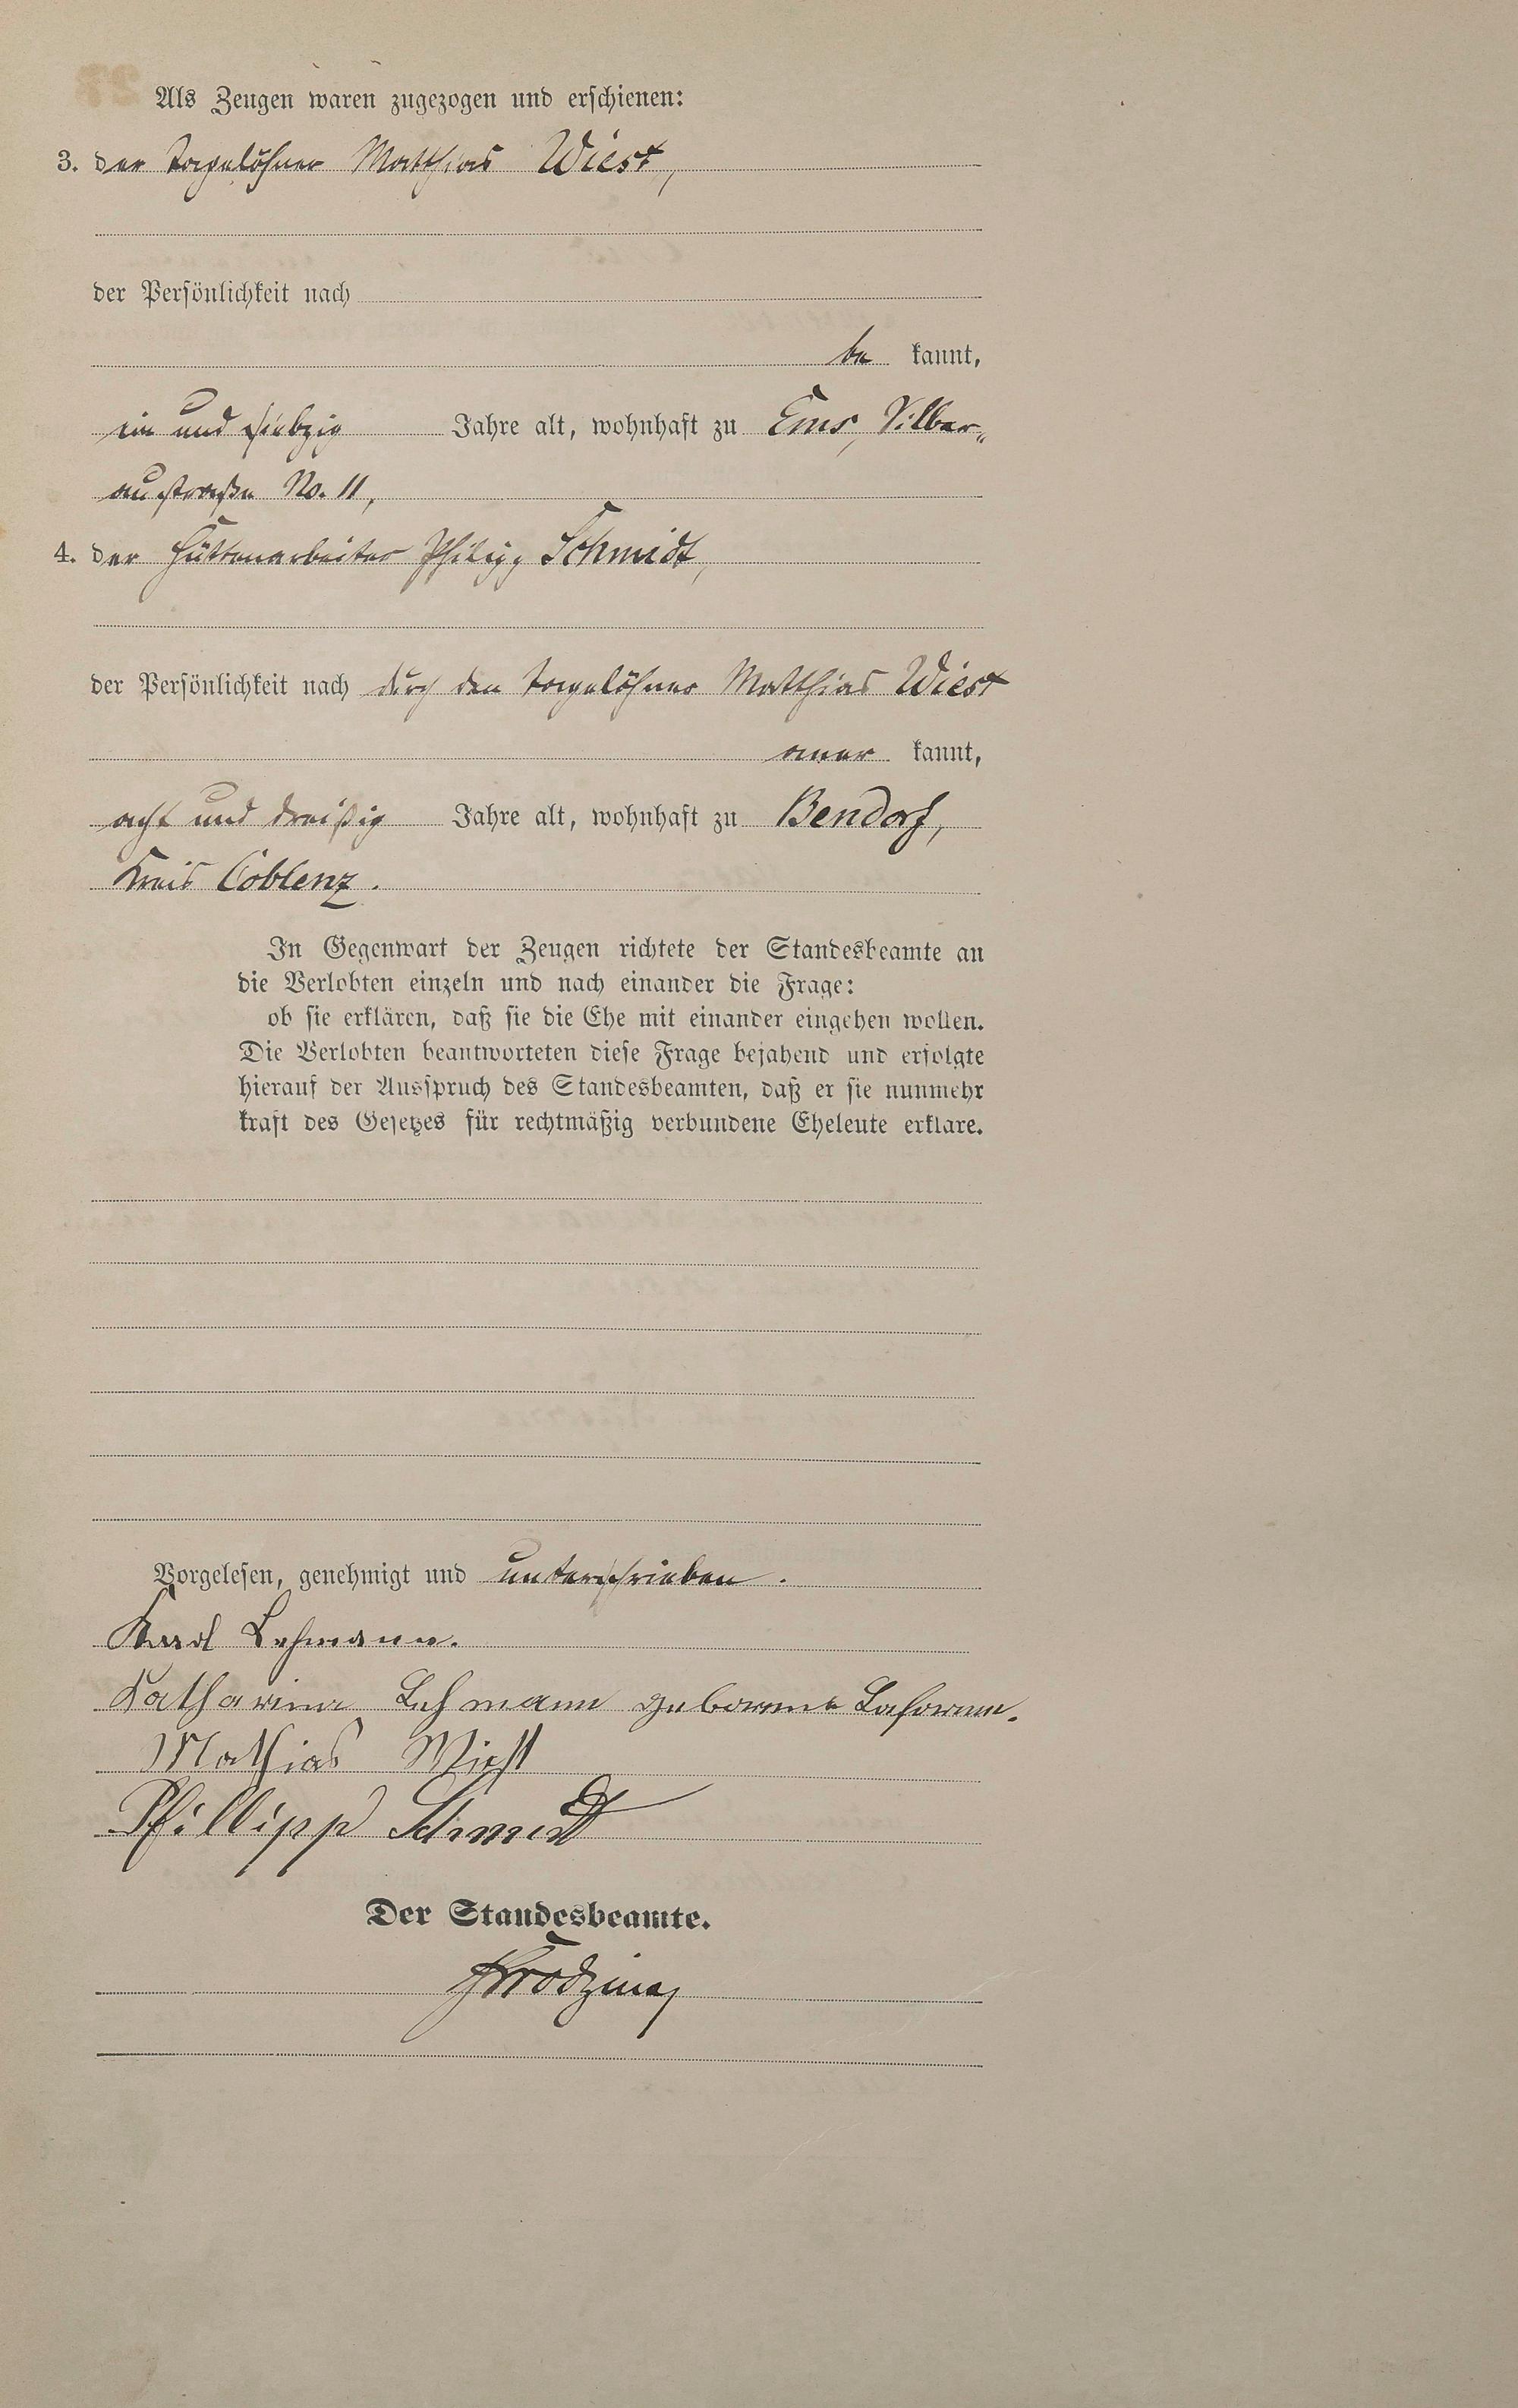 Als Zeugen waren zugezogen und erschienen:
3. der Tagelöhner Matthias Wiest,
der Persönlichkeit nach
be kannt,
ein und siebzig Jahre alt, wohnhaft zu Ems, Silber„
austraße No. 11,
4. der Hüttenarbeiter Philipp Schmidt,
der Persönlichkeit nach durch den Tagelöhner Matthias Wiest
aner kannt,
acht und dreißig Jahre alt, wohnhaft zu Bendorf,
Kreis Coblenz.
In Gegenwart der Zeugen richtete der Standesbeamte an
die Verlobten einzeln und nach einander die Frage:
ob sie erklären, daß sie die Ehe mit einander eingehen wollen.
Die Verlobten beantworteten diese Frage bejahend und erfolgte
hierauf der Ausspruch des Standesbeamten, daß er sie nunmehr
kraft des Gesetzes für rechtmäßig verbundene Eheleute erkläre.
Vorgelesen, genehmigt und unterschrieben.
Karl Lehmann.
Katharina Lehmann geborene
Mathias Wiest
Phillipp Schmidt
Der Standesbeamte.